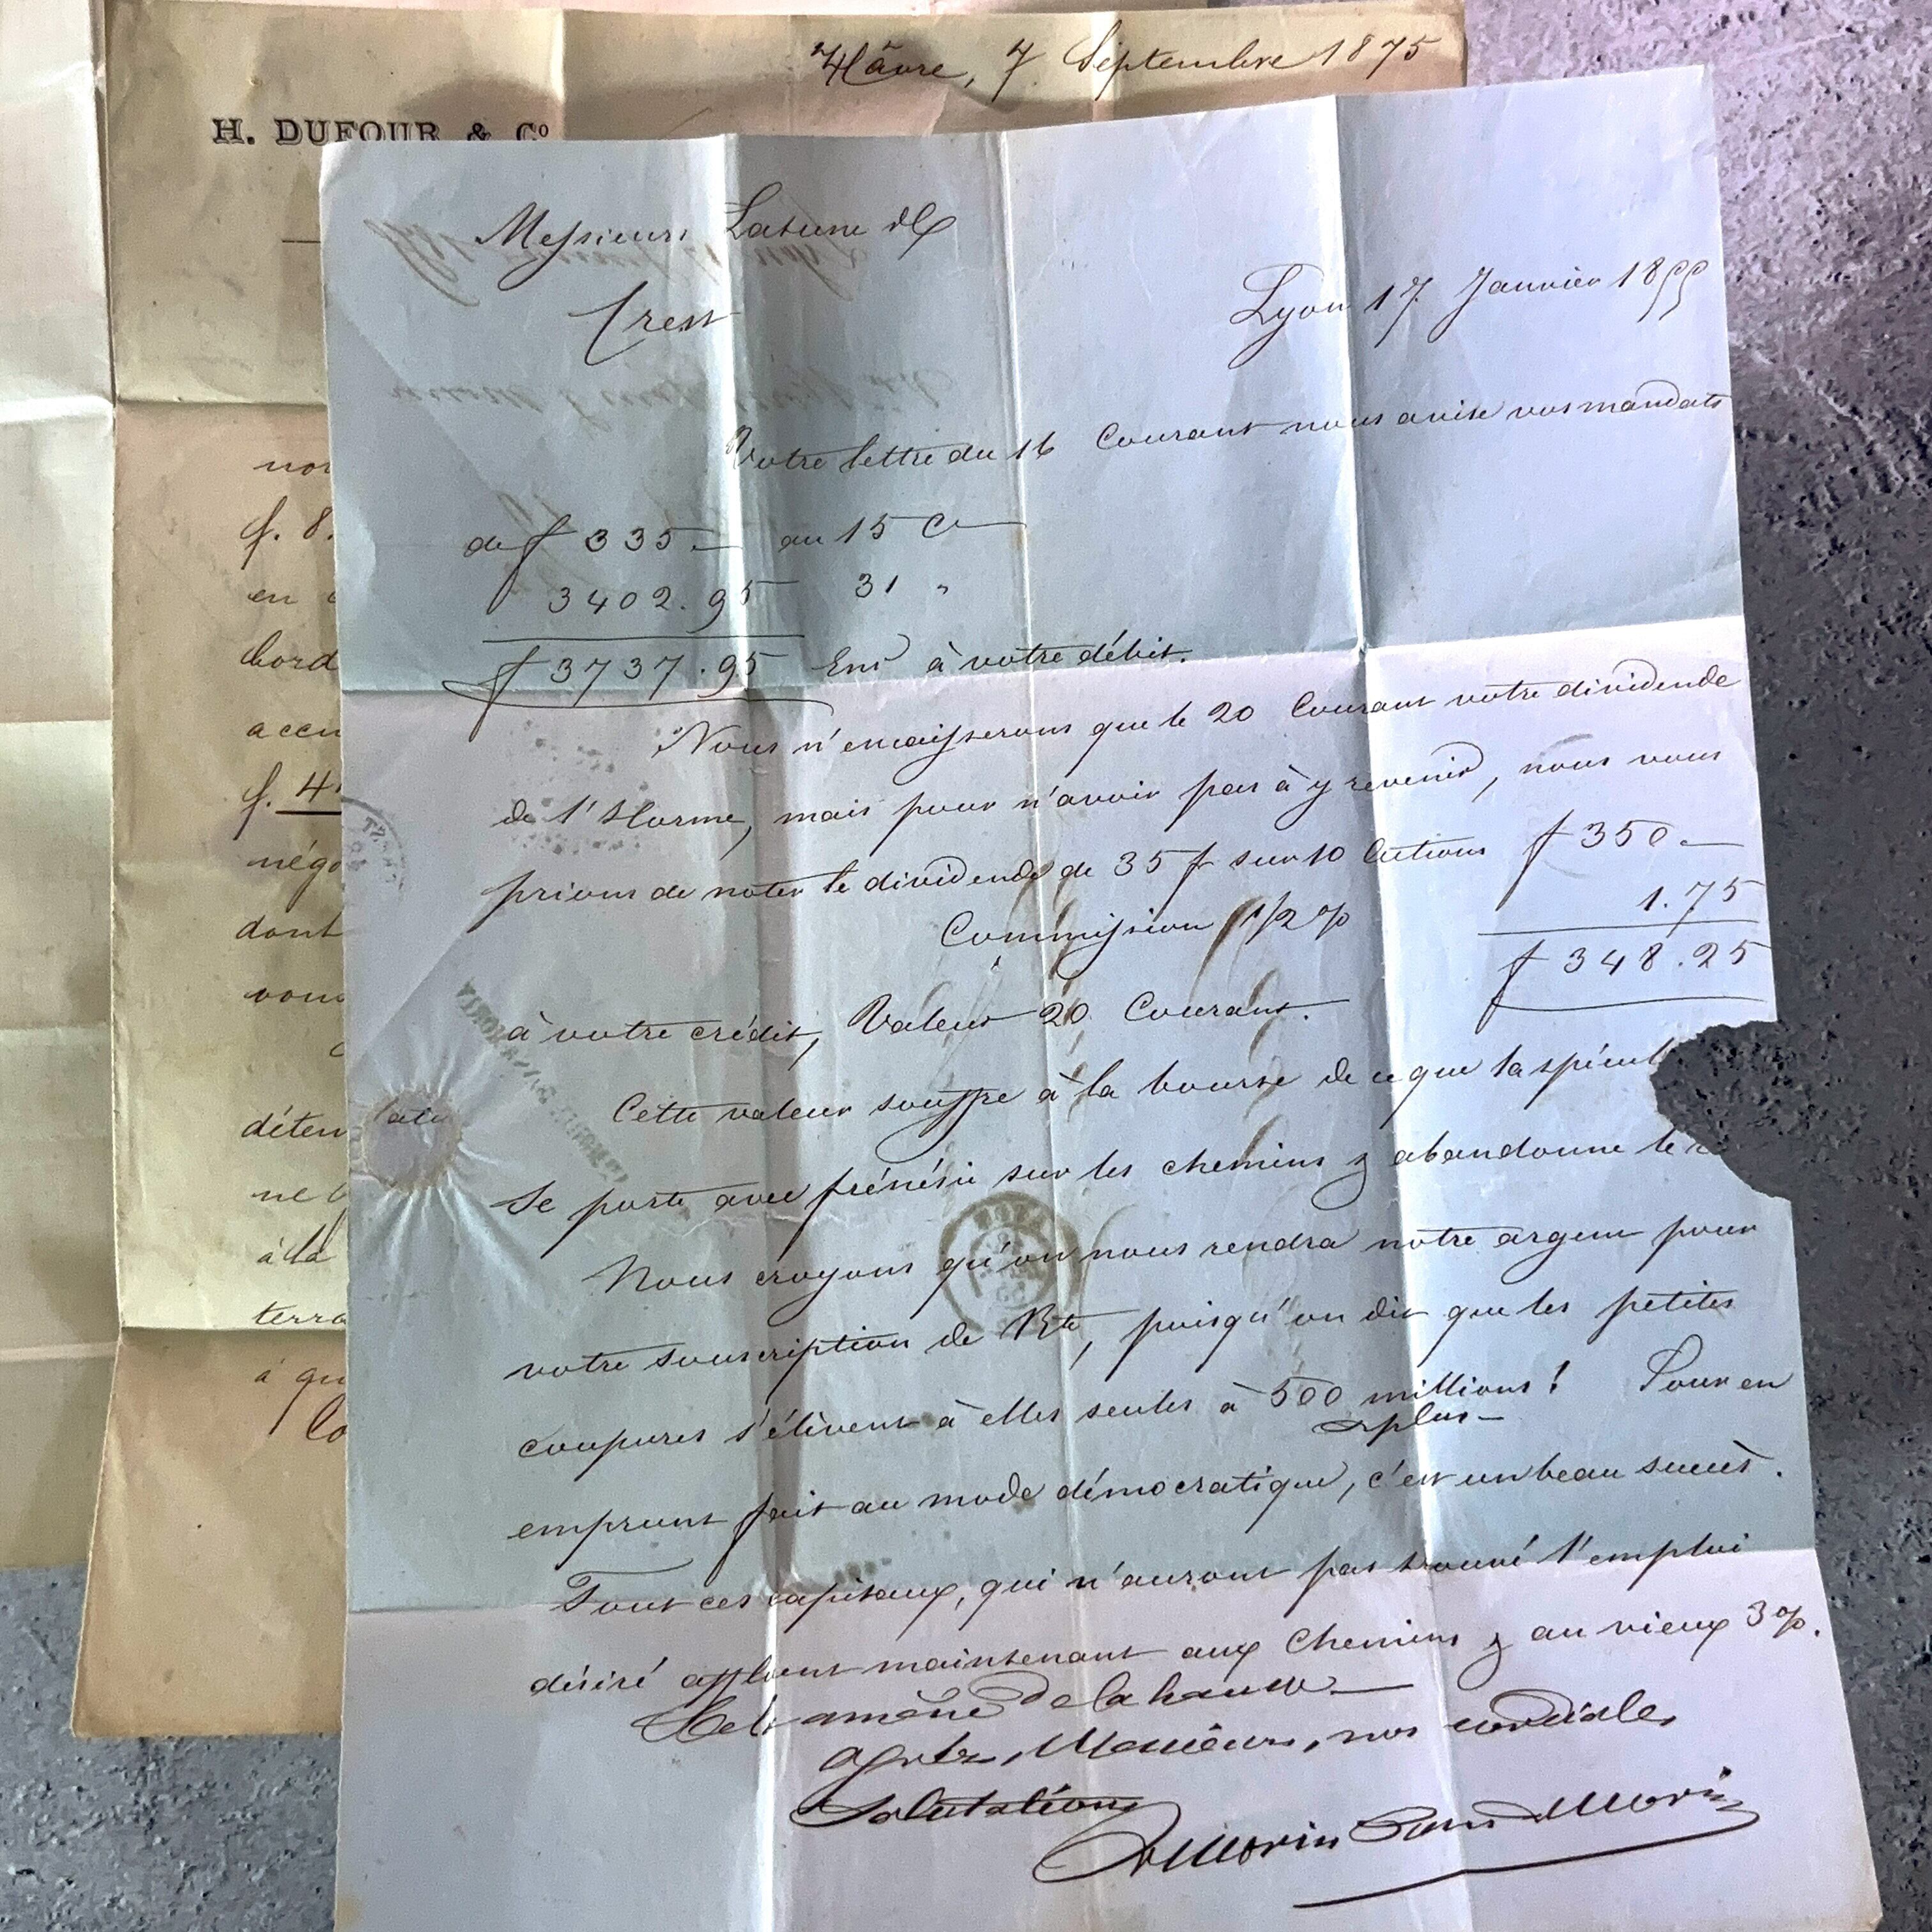 Hâvre, 7 Septembre 1875
H. DUFOUR & Co
nou
f. 8.
en
bord
accu
f. 4
négo
dont
vou
déten
ne
à la
terra
à qu
Messieurs Latune &C
Crest
Lyon 17 Janvier 1855
Votre lettre du 16 Courant nous avise vos mandats
de f 335 — au 15 Ct
3402.95 31 "
f 3737.95 Ens à votre débit.
Nous n'encaisserons que le 20 Courant votre dividende
de l'Horme, mais pour n'avoir pas à y revenir, nous vous
prions de noter le dividende de 35 f sur 10 Actions f 350 —
Commission 1/2 % 1.75
f 348.25
à votre crédit, Valeur 20 Courant.
Cette valeur souffre à la bourse de ce que la spécul
se porte avec frénésie sur les chemins & abandonne le
Nous croyons qu'on nous rendra notre argent pour
votre souscription de Rte, puisqu'on dit que les petites
coupures s'élèvent à elles seules à 500 millions! Pour en
& plus —
emprunt fait au mode démocratique, c'est un beau succès.
Tout ces capitaux, qui n'auront pas trouvé l'emploi
désiré affluent maintenant aux Chemins & au vieux 3 %.
Cela amène de la hausse —
Agréez, Messieurs, nos cordiales
Salutations
Morin Morin